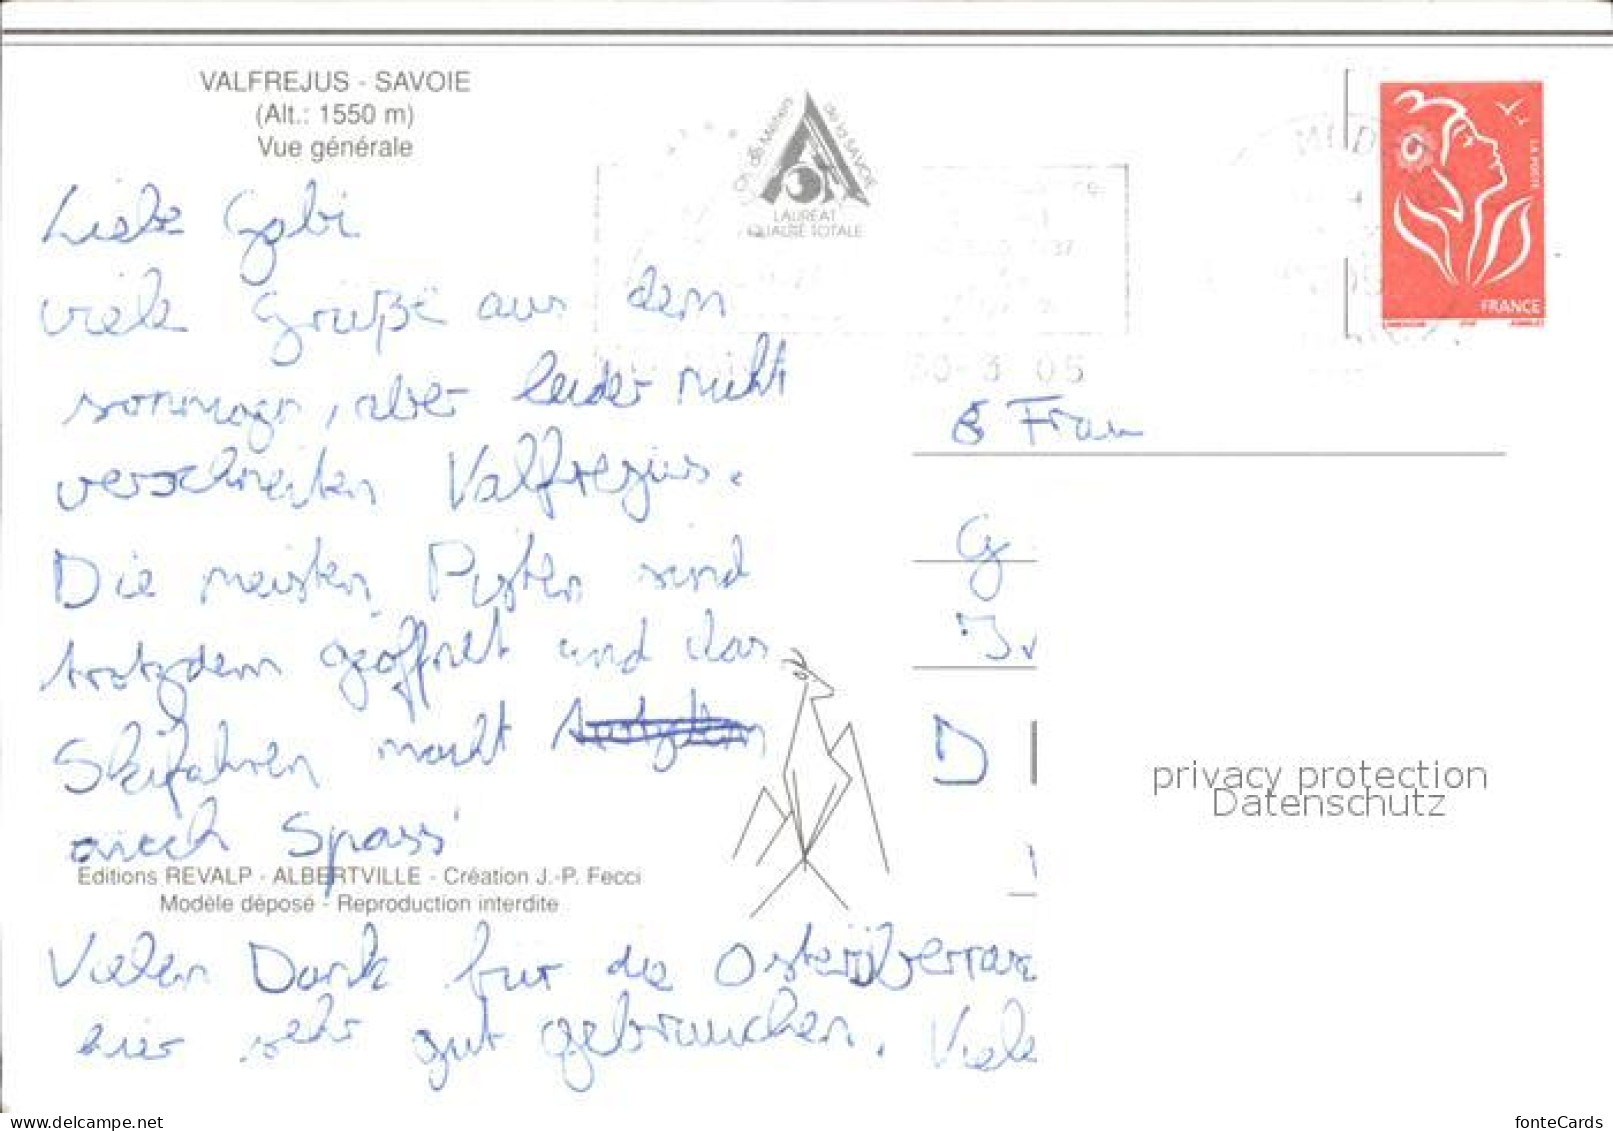 VALFREJUS - SAVOIE
(Alt.: 1550 m)
Vue générale
de Métiers de la SAVOIE
LAUREAT
QUALITE TOTALE
LA POSTE
FRANCE
30-3 05
Liebe Gabi
viele Grüße aus dem
sonnigen, aber leider nicht
verschneiten Valfregius.
Die meisten Pisten sind
trotzdem geöffnet und das
Skifahren macht trotzdem
auch Spass
Editions REVALP - ALBERTVILLE - Création J.-P. Fecci
Modèle déposé - Reproduction interdite
Vielen Dank für die Osterüberra
hier sehr gut gebrauchen. Viele
Frau
G
D
privacy protection
Datenschutz
www.delcampe.net
fonteCards